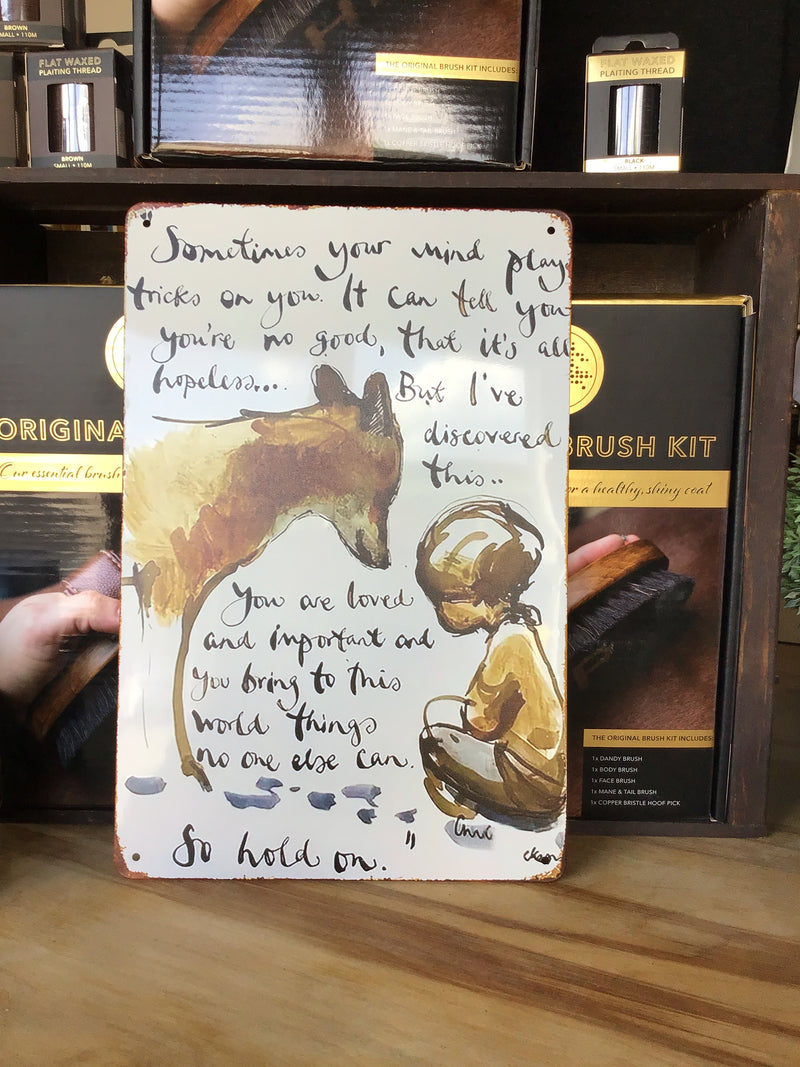 BROWN
SMALL • 110M
FLAT WAXED
PLAITING THREAD
BROWN
SMALL • 110M
THE ORIGINAL BRUSH KIT INCLUDES:
1x MANE & TAIL BRUSH
1x COPPER BRISTLE HOOF PICK
FLAT WAXED
PLAITING THREAD
BLACK
SMALL • 110M
"Sometimes your mind play
tricks on you. It can tell you
you're no good, that it's all
hopeless....
But I've
discovered
this..
You are loved
and important and
you bring to this
world things
no one else can.
So hold on."
ORIGINA
Our essential brush
BRUSH KIT
or a healthy, shiny coat
THE ORIGINAL BRUSH KIT INCLUDES:
1x DANDY BRUSH
1x BODY BRUSH
1x FACE BRUSH
1x MANE & TAIL BRUSH
1x COPPER BRISTLE HOOF PICK